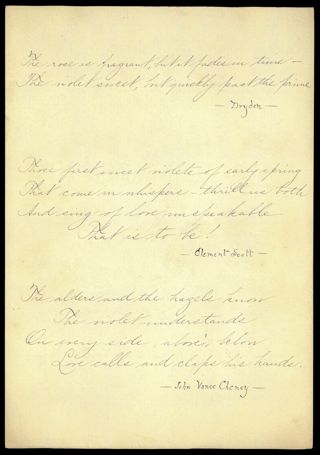 The rose is fragrant, but it fades in time —
The violet sweet, but quickly past the prime
— Dryden —
Those first sweet violets of early spring
That come in whispers — thrill us both
And sing of love unspeakable
That is to be!
— Clement Scott —
The alders and the hazels know
The violet understands
On every side, above, below
Love calls, and claps his hands.
— John Vance Cheney —